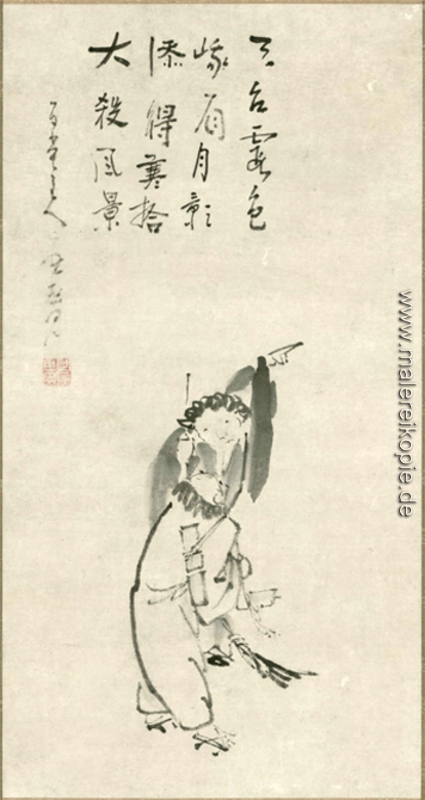 天台霞色
峨眉月影
添得寒拾
大殺風景
www.malereikopie.de